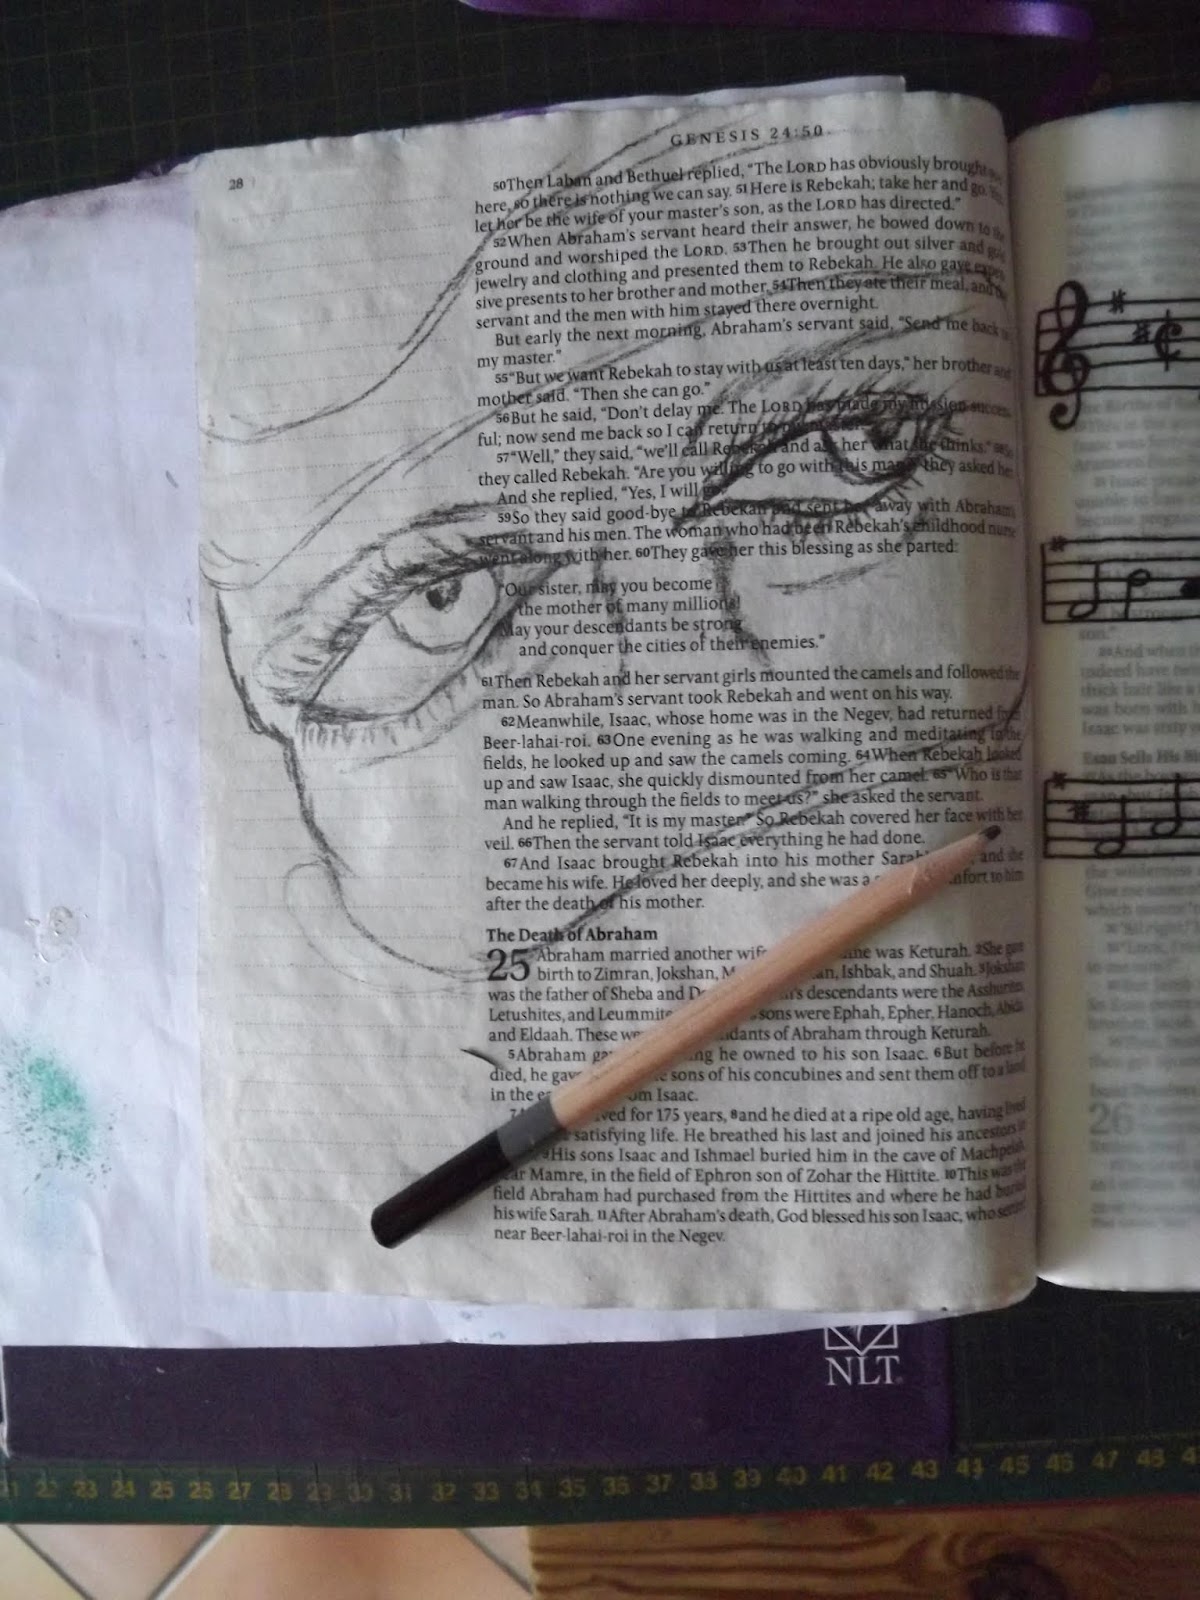 GENESIS 24:50
28
50Then Laban and Bethuel replied, "The LORD has obviously brought
here, so there is nothing we can say. 51Here is Rebekah; take her and go.
let her be the wife of your master's son, as the LORD has directed."
52When Abraham's servant heard their answer, he bowed down to the
ground and worshiped the LORD. 53Then he brought out silver and gold
jewelry and clothing and presented them to Rebekah. He also gave expen-
sive presents to her brother and mother. 54Then they ate their meal, and the
servant and the men with him stayed there overnight.
But early the next morning, Abraham's servant said, "Send me back to
my master."
55"But we want Rebekah to stay with us at least ten days," her brother and
mother said. "Then she can go."
56But he said, "Don't delay me. The LORD has made my mission success-
ful; now send me back so I can return to my master."
57"Well," they said, "we'll call Rebekah and ask her what she thinks." 58So
they called Rebekah. "Are you willing to go with this man?" they asked her.
And she replied, "Yes, I will go."
59So they said good-bye to Rebekah and sent her away with Abraham's
servant and his men. The woman who had been Rebekah's childhood nurse
went along with her. 60They gave her this blessing as she parted:
"Our sister, may you become
the mother of many millions!
May your descendants be strong
and conquer the cities of their enemies."
61Then Rebekah and her servant girls mounted the camels and followed the
man. So Abraham's servant took Rebekah and went on his way.
62Meanwhile, Isaac, whose home was in the Negev, had returned from
Beer-lahai-roi. 63One evening as he was walking and meditating in the
fields, he looked up and saw the camels coming. 64When Rebekah looked
up and saw Isaac, she quickly dismounted from her camel. 65"Who is that
man walking through the fields to meet us?" she asked the servant.
And he replied, "It is my master." So Rebekah covered her face with her
veil. 66Then the servant told Isaac everything he had done.
67And Isaac brought Rebekah into his mother Sarah's and she
became his wife. He loved her deeply, and she was a comfort to him
after the death of his mother.
The Death of Abraham
25 Abraham married another wife was Keturah. 2She gave
birth to Zimran, Jokshan, Ishbak, and Shuah. 3Jokshan
was the father of Sheba and descendants were the Asshurites,
Letushites, and Leummites sons were Ephah, Epher, Hanoch, Abida
and Eldaah. These were descendants of Abraham through Keturah.
5Abraham gave he owned to his son Isaac. 6But before he
died, he gave sons of his concubines and sent them off to a land
in the from Isaac.
lived for 175 years, 8and he died at a ripe old age, having lived
satisfying life. He breathed his last and joined his ancestors in
9His sons Isaac and Ishmael buried him in the cave of Machpelah
near Mamre, in the field of Ephron son of Zohar the Hittite. 10This was the
field Abraham had purchased from the Hittites and where he had buried
his wife Sarah. 11After Abraham's death, God blessed his son Isaac, who settled
near Beer-lahai-roi in the Negev.
son."
And when
indeed
thick hair like a
was born with
Isaac was sixty
Esau Sells His
the wilderness
Give me some
which means
"All right,"
"Look,
26
NLT
22 23 24 25 26 27 28 29 30 31 32 33 34 35 36 37 38 39 40 41 42 43 44 45 46 47 48